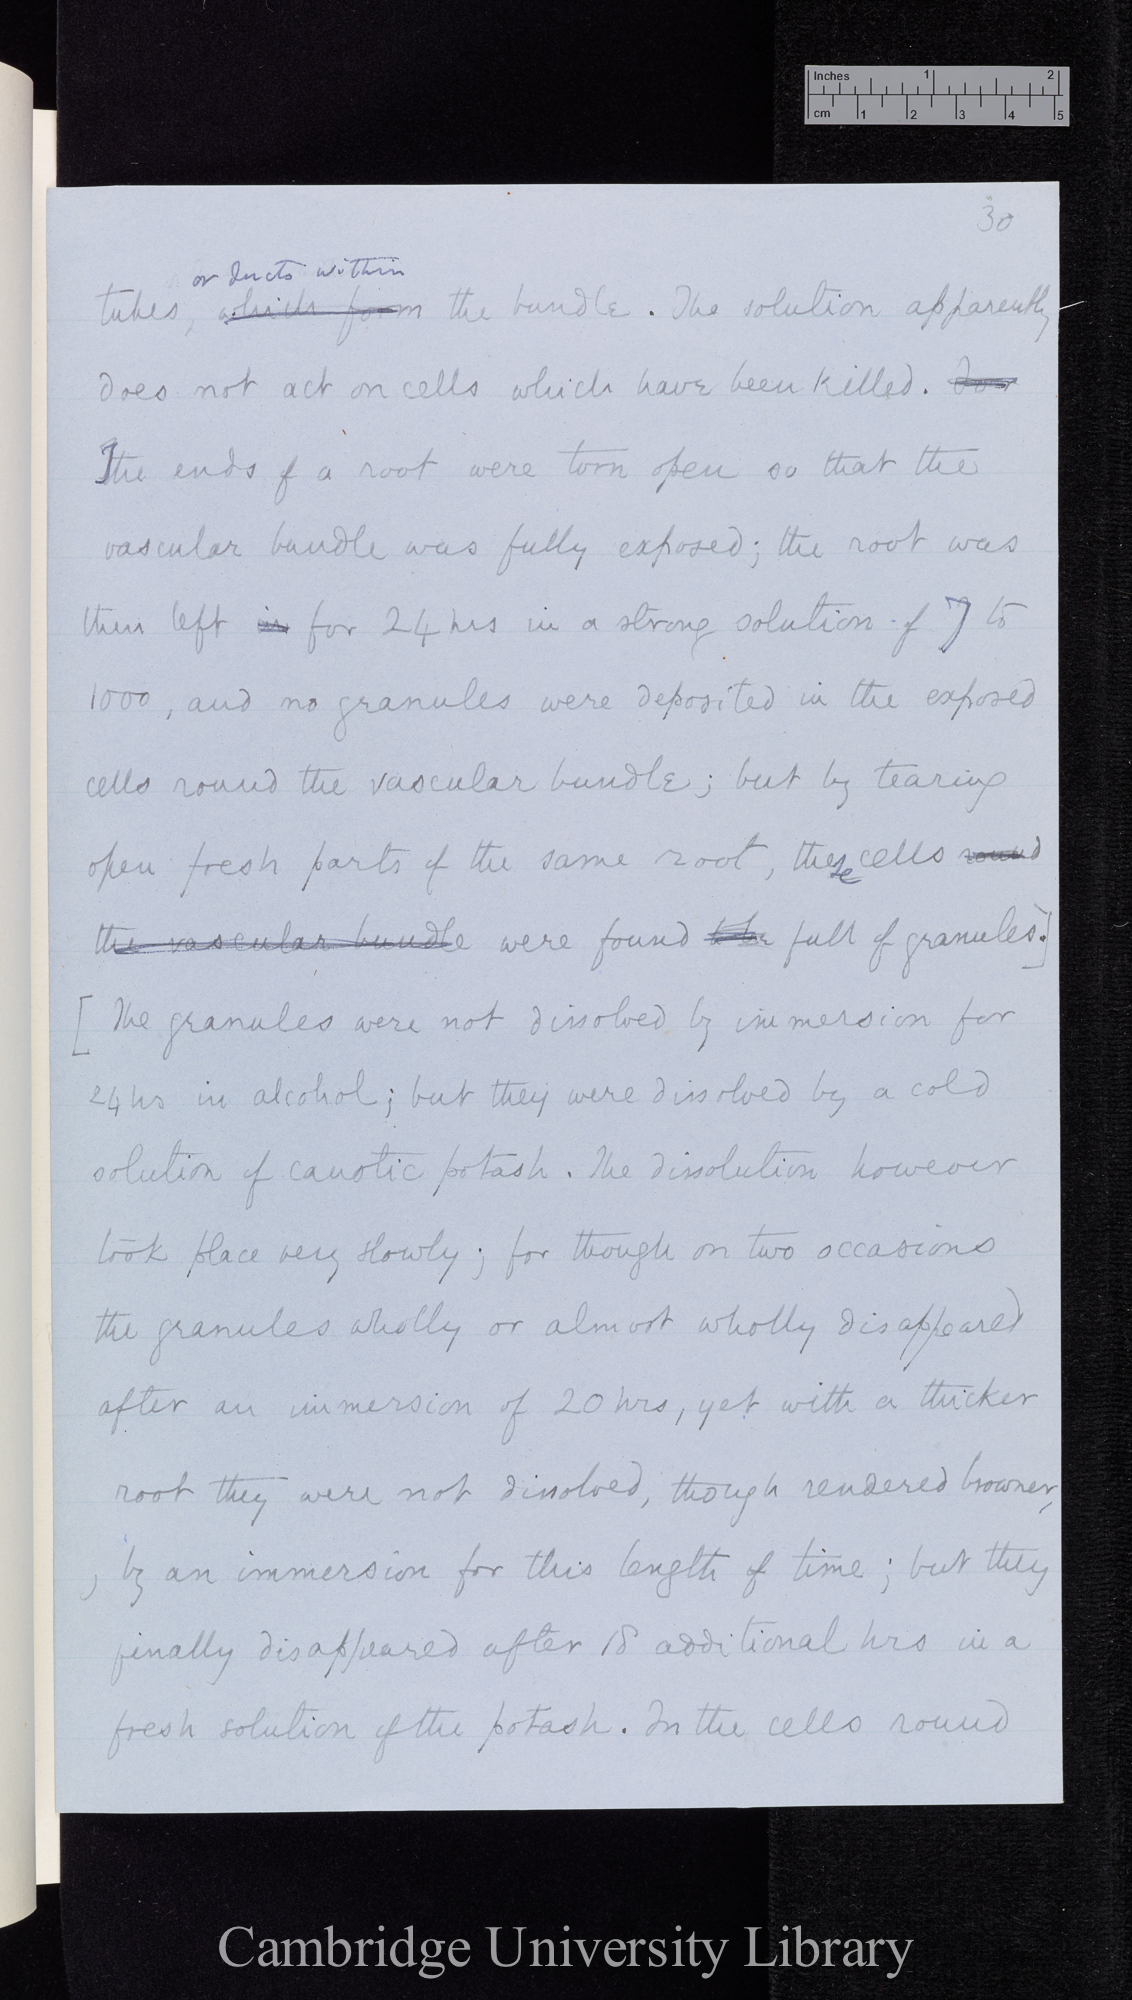 Inches 1 2
cm 1 2 3 4 5
30
or ducts within
tubes, which form the bundle. The solution apparently
does not act on cells which have been killed. For
The ends of a root were torn open so that the
vascular bundle was fully exposed; the root was
then left in for 24 hrs in a strong solution of 7 to
1000, and no granules were deposited in the exposed
cells round the vascular bundle; but by tearing
open fresh parts of the same root, these cells round
the vascular bundle were found to be full of granules.]
[The granules were not dissolved by immersion for
24 hrs in alcohol; but they were dissolved by a cold
solution of caustic potash. The dissolution however
took place very slowly; for though on two occasions
the granules wholly or almost wholly disappeared
after an immersion of 20 hrs, yet with a thicker
root they were not dissolved, though rendered browner,
, by an immersion for this length of time; but they
finally disappeared after 18 additional hrs in a
fresh solution of the potash. In the cells round
Cambridge University Library